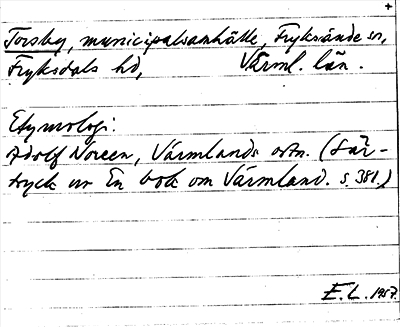 +
Torsby, municipalsamhälle, Fryksände sn,
Fryksdals hd, Värml. län.
Etymologi:
Adolf Noreen, Värmlands ortn. (Sär-
tryck ur En bok om Värmland. s. 381.)
E. L. 1957.